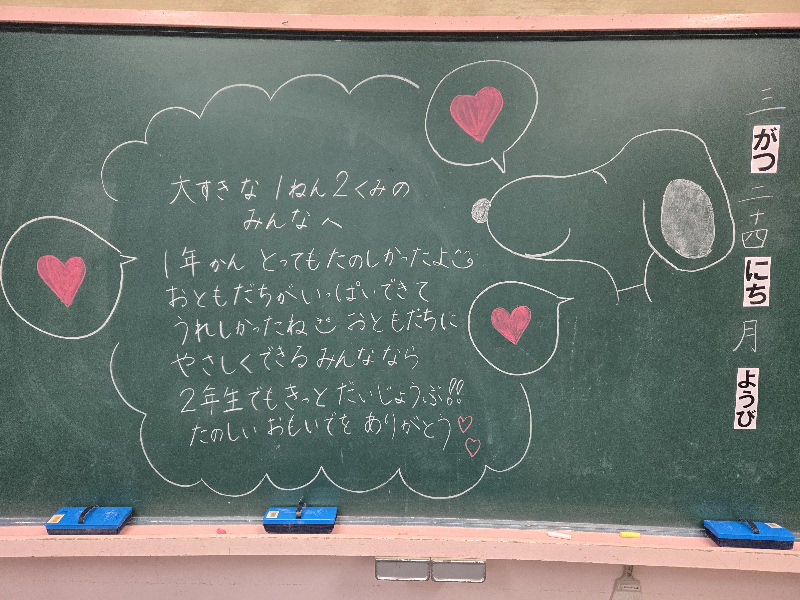 大すきな1ねん2くみの
みんなへ
1年かん とってもたのしかったよ
おともだちがいっぱいできて
うれしかったね おともだちに
やさしくできるみんななら
2年生でもきっとだいじょうぶ!!
たのしいおもいでを ありがとう♡
♡
三がつ二十四にち月ようび